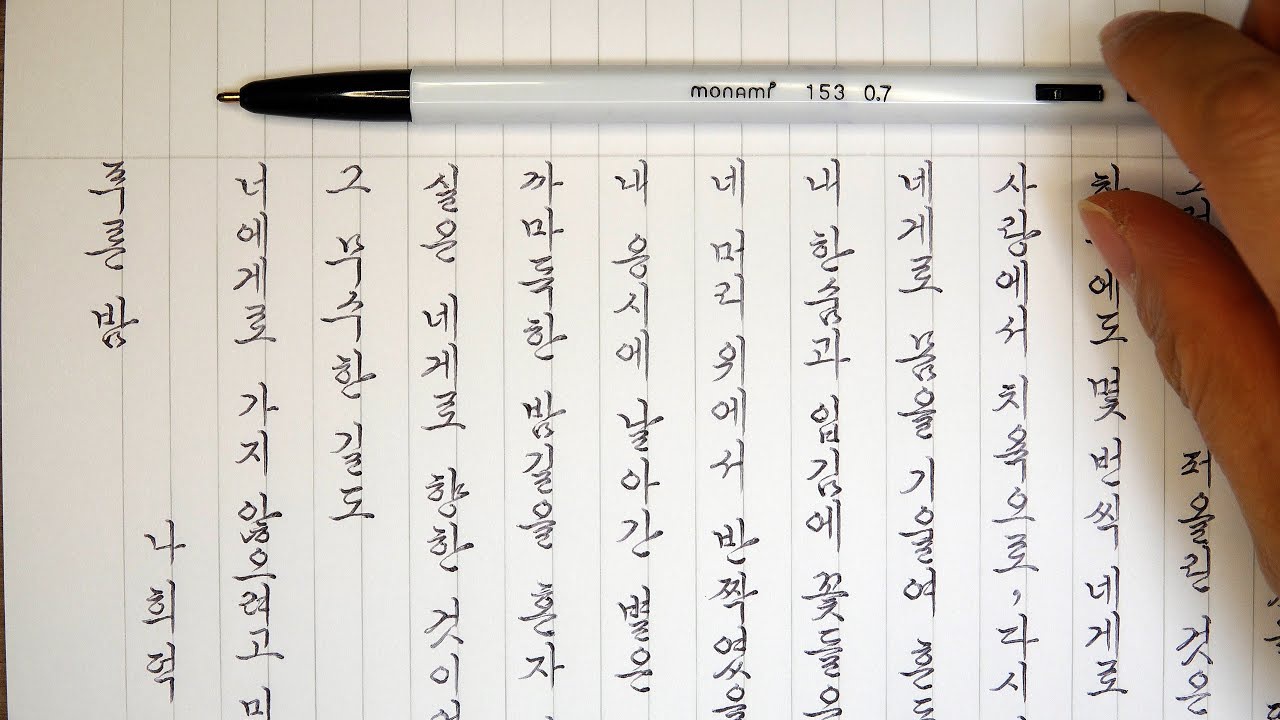 monami 153 0.7
푸른 밤
나희덕
너에게로 가지 않으려고 미
그 무수한 길도
실은 네게로 향한 것이
까마득한 밤길을 혼자
내 응시에 날아간 별은
네 머리 위에서 반짝였을
내 한숨과 입김에 꽃들은
네게로 몸을 기울여
사랑에서 치욕으로, 다시
에도 몇 번씩 네게로
퍼올린 것은